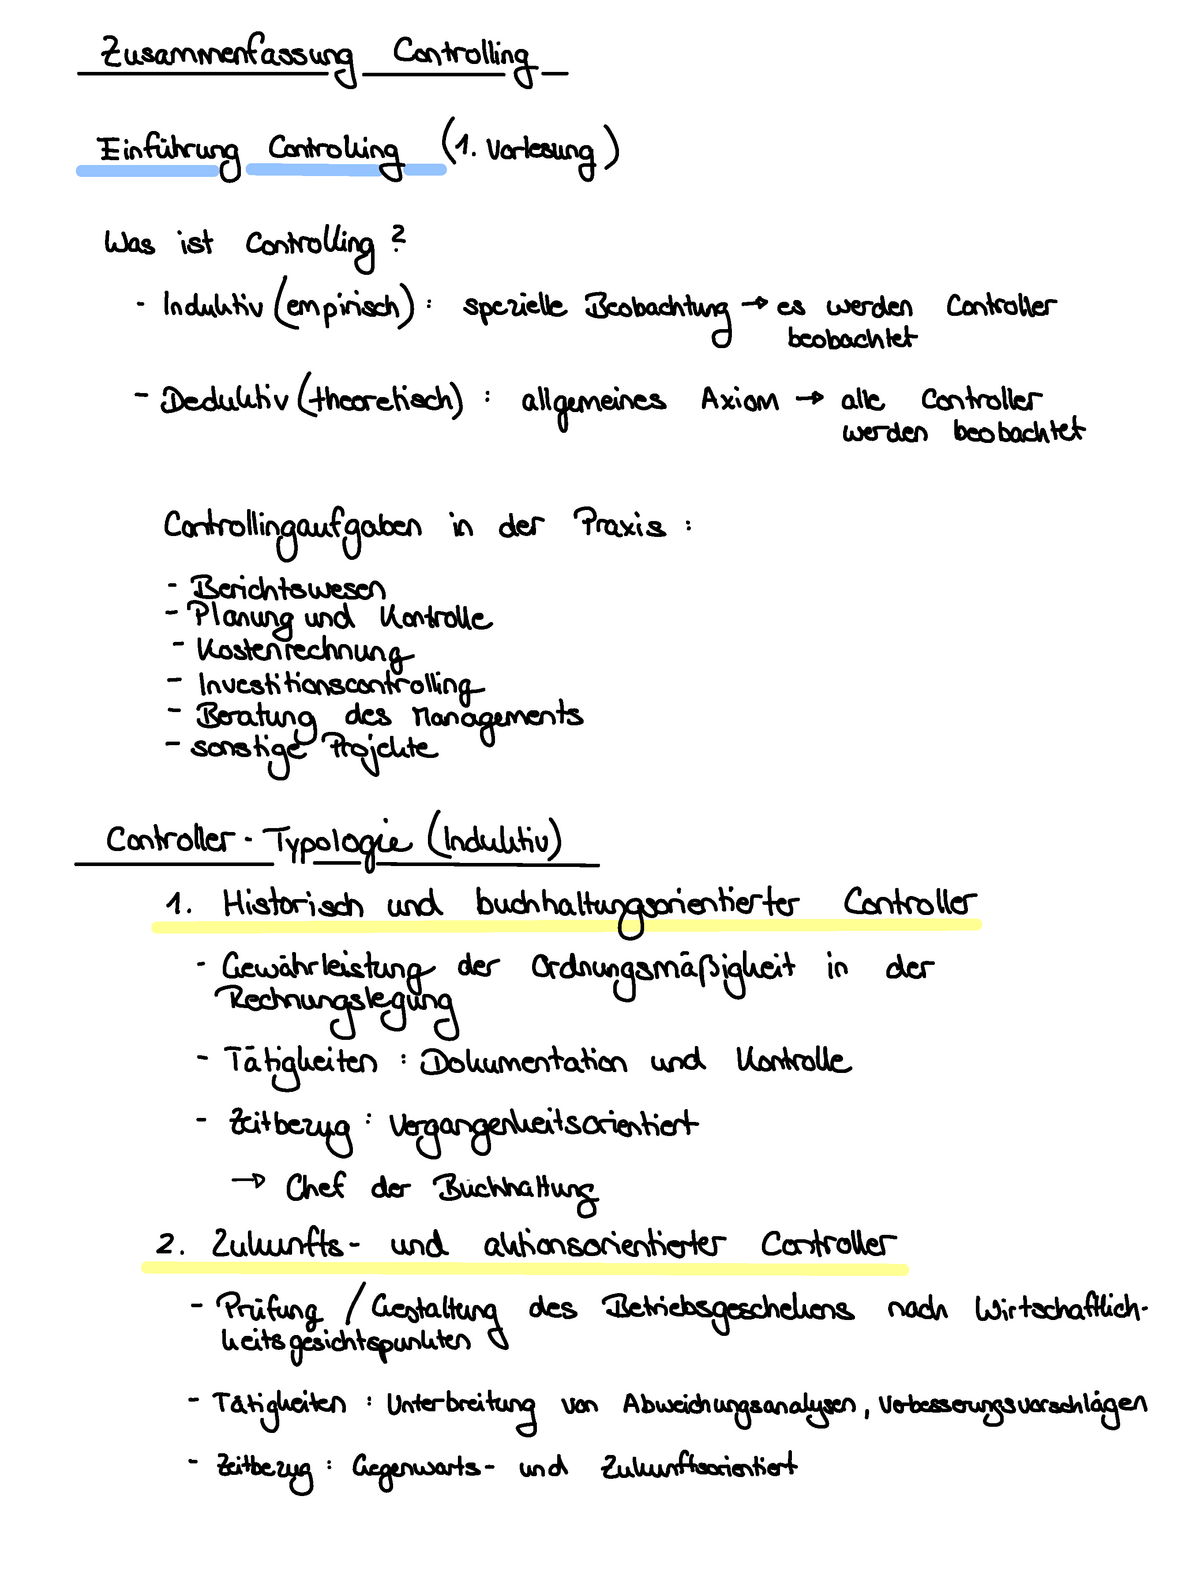 Zusammenfassung Controlling
Einführung Controlling (1. Vorlesung)
Was ist Controlling?
- Induktiv (empirisch): spezielle Beobachtung → es werden Controller
beobachtet
- Deduktiv (theoretisch): allgemeines Axiom → alle Controller
werden beobachtet
Controllingaufgaben in der Praxis:
- Berichtswesen
- Planung und Kontrolle
- Kostenrechnung
- Investitionscontrolling
- Beratung des Managements
- sonstige Projekte
Controller-Typologie (Induktiv)
1. Historisch und buchhaltungsorientierter Controller
- Gewährleistung der Ordnungsmäßigkeit in der
Rechnungslegung
- Tätigkeiten: Dokumentation und Kontrolle
- Zeitbezug: Vergangenheitsorientiert
→ Chef der Buchhaltung
2. Zukunfts- und aktionsorientierter Controller
- Prüfung / Gestaltung des Betriebsgeschehens nach Wirtschaftlich-
keitsgesichtspunkten
- Tätigkeiten: Unterbreitung von Abweichungsanalysen, Verbesserungsvorschlägen
- Zeitbezug: Gegenwarts- und Zukunftsorientiert